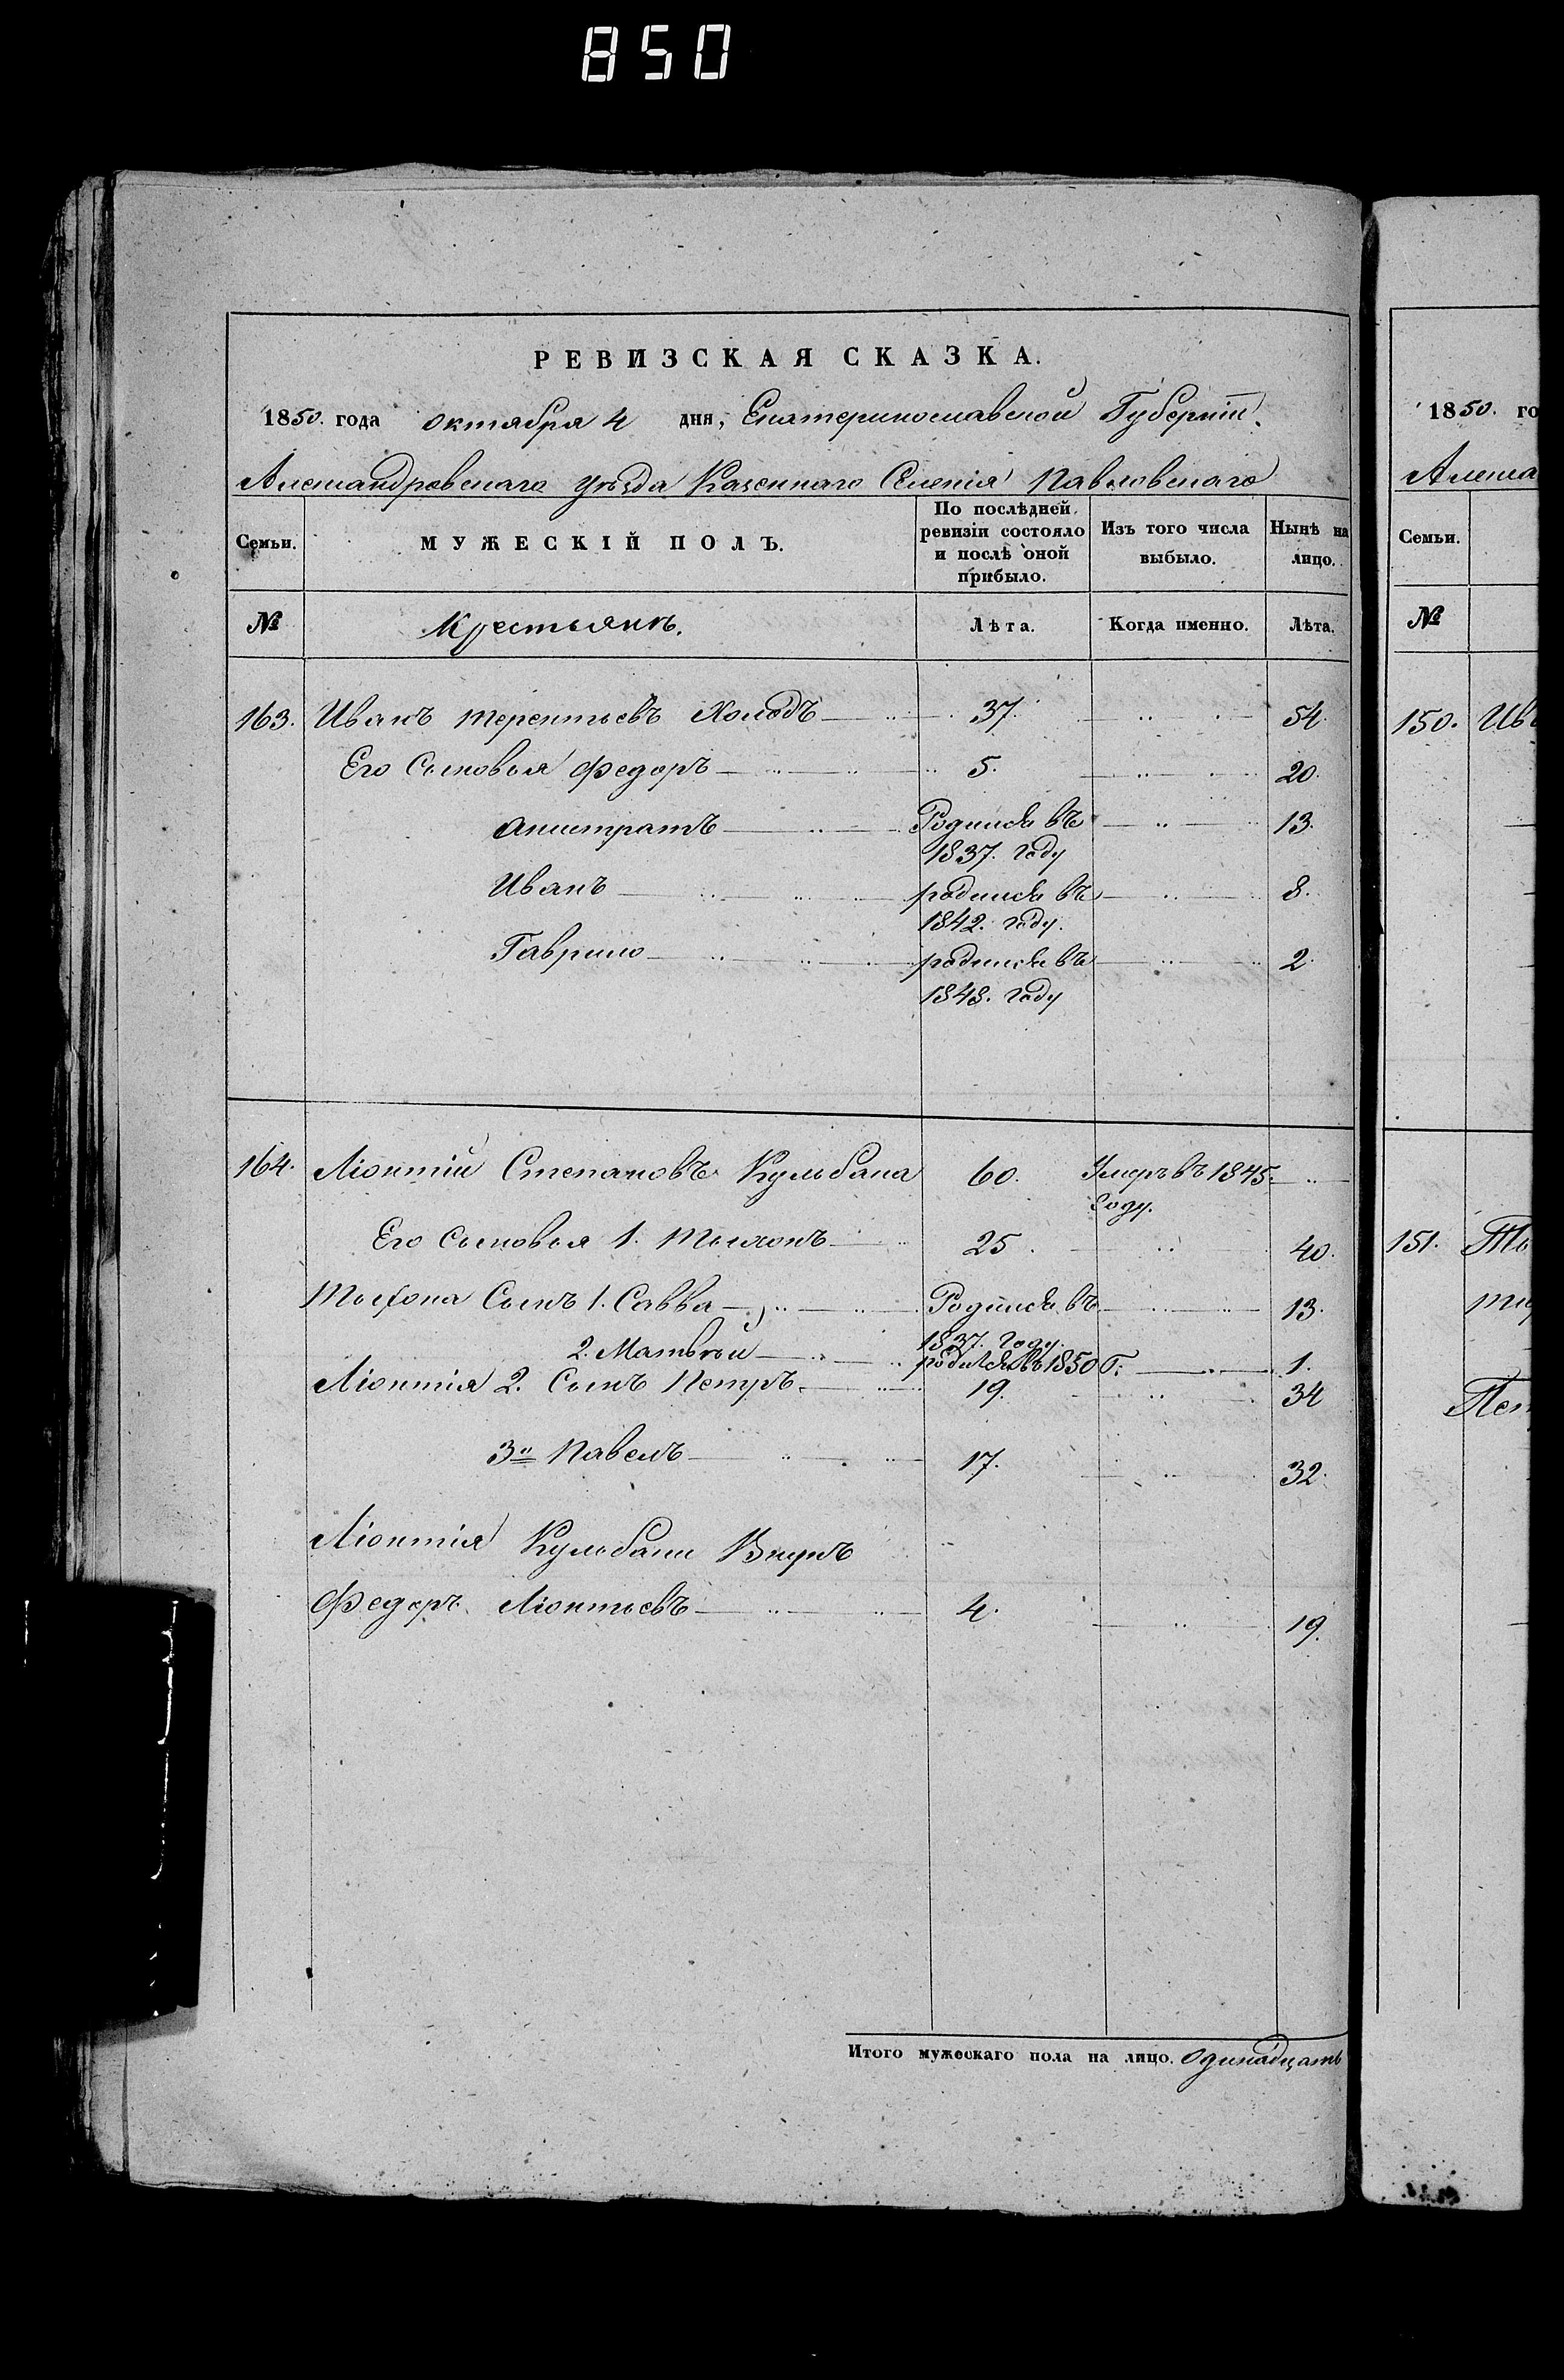 850
РЕВИЗСКАЯ СКАЗКА.
1850. года октября 4 дня, Екатеринославской Губерніи.
Александровскаго уѣзда Казеннаго Селенія Павловскаго
Семьи. МУЖЕСКІЙ ПОЛЪ. По послѣдней ревизіи состояло и послѣ оной прибыло. Изъ того числа выбыло. Нынѣ на лицо.
№ Крестьянъ. Лѣта. Когда именно. Лѣта.
163. Иванъ Терентьевъ Холодъ 37. 54.
Его Сыновья Федоръ 5. 20.
Анистратъ Родился въ 13.
1837. году
Иванъ родился въ 8.
1842. году.
Гаврило родился въ 2.
1848. году
164. Ліонтій Степановъ Кульбака 60. Умеръ въ 1845.
году.
Его Сыновья 1. Тыхонъ 25. 40.
Тыхона Сынъ 1. Савва Родился въ 13.
1837. году
2. Матвѣй родился въ 1850 Г. 1.
Ліонтія 2. Сынъ Петръ 19. 34
3й Павелъ 17. 32.
Ліонтія Кульбаки Внукъ
Федоръ Ліонтьевъ 4. 19.
Итого мужескаго пола на лицо. Одинадцать
1850. го
Алекса
Семьи.
№
150. Ив
151.